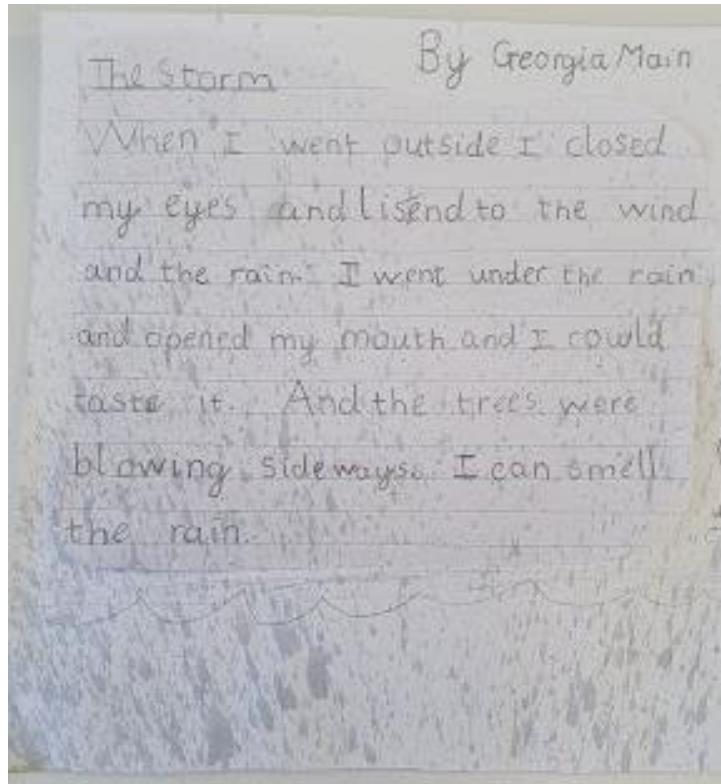 The Storm
By Georgia Main
When I went outside I closed
my eyes and lisend to the wind
and the rain. I went under the rain
and opened my mouth and I cowld
taste it. And the trees were
blowing sideways. I can smell
the rain.